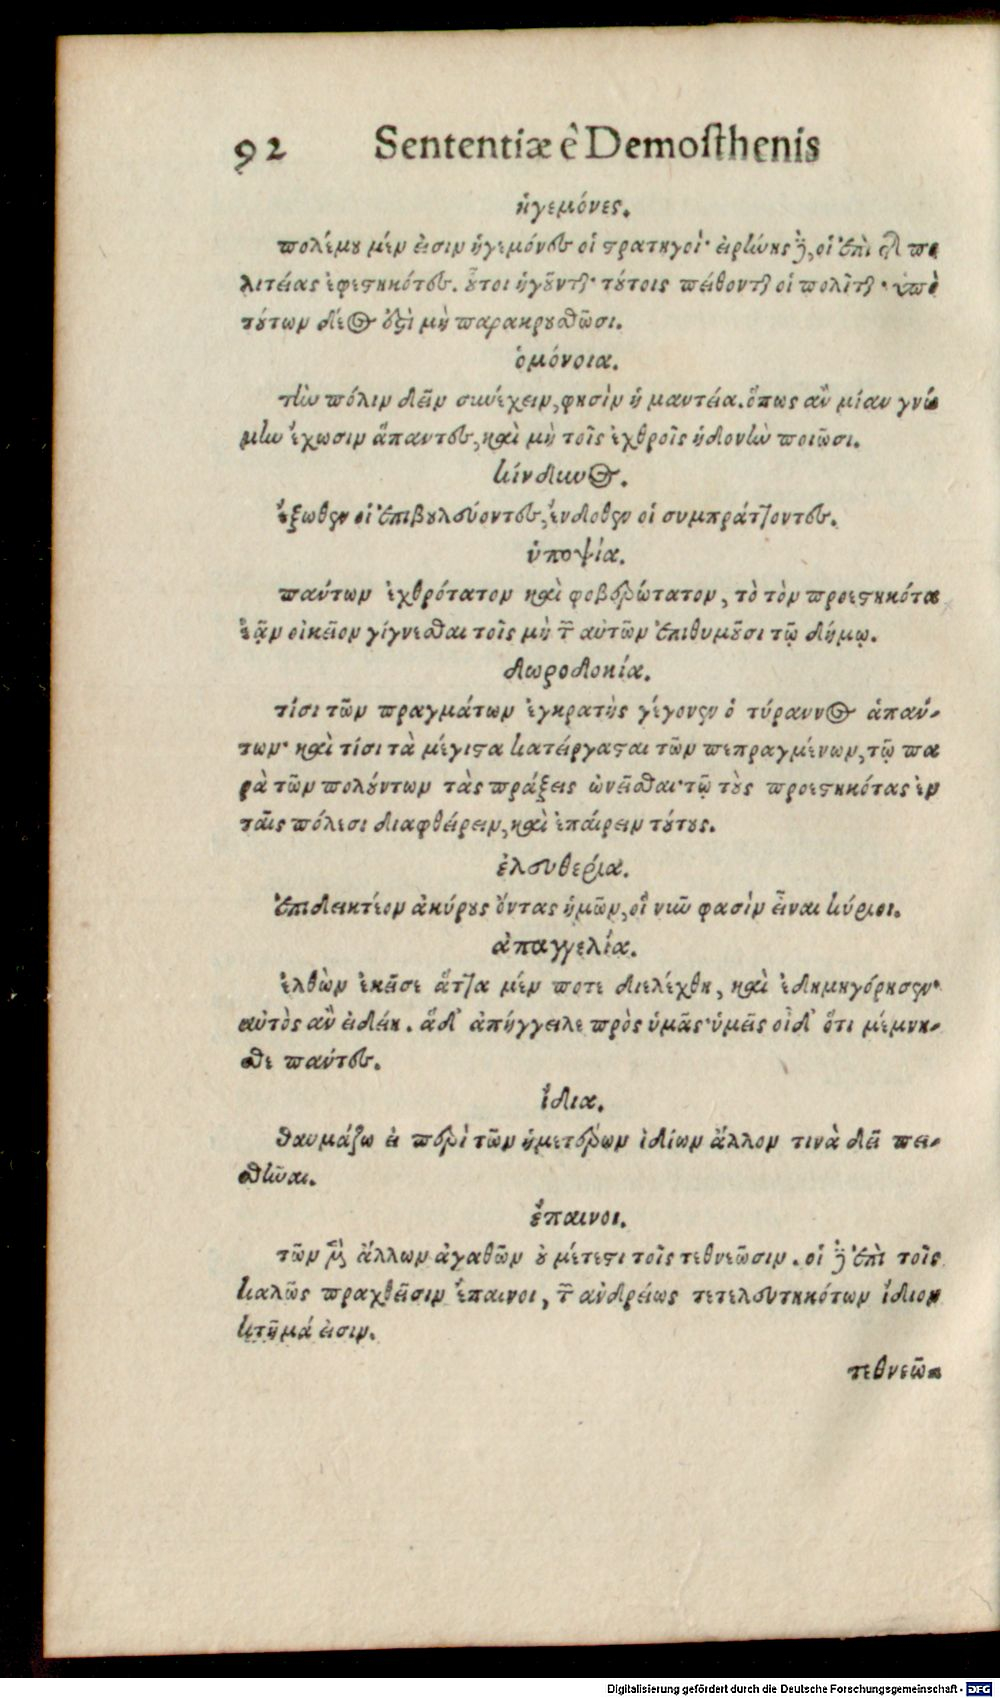 92 Sententiæ è Demosthenis
ἡγεμόνες.
πολέμου μέν εἰσιν ἡγεμόνες οἱ στρατηγοί· εἰρήνης δὲ, οἱ ἐπὶ τῆς πο
λιτείας ἐφεστηκότες. οὗτοι ἡγοῦνται· τούτοις πείθονται οἱ πολῖται· ὑπὸ
τούτων δέος ἐστὶ μὴ παρακρουσθῶσι.
ὁμόνοια.
τὴν πόλιν δεῖν συνέχειν, φησὶν ἡ μαντεία. ὅπως ἂν μίαν γνώ
μην ἔχωσιν ἅπαντες, καὶ μὴ τοῖς ἐχθροῖς ἡδονὴν ποιῶσι.
κίνδυνος.
ἔξωθεν οἱ ἐπιβουλεύοντες, ἔνδοθεν οἱ συμπράττοντες.
ὑποψία.
πάντων ἐχθρότατον καὶ φοβερώτατον, τὸ τὸν προεστηκότα
ἐᾷν οἰκεῖον γίγνεσθαι τοῖς μὴ τῶν αὐτῶν ἐπιθυμοῦσι τῷ δήμῳ.
δωροδοκία.
τίσι τῶν πραγμάτων ἐγκρατὴς γέγονεν ὁ τύραννος ἁπάν-
των· καὶ τίσι τὰ μέγιστα κατείργασται τῶν πεπραγμένων, τῷ πα
ρὰ τῶν πολούντων τὰς πράξεις ὠνεῖσθαι· τῷ τοὺς προεστηκότας ἐν
ταῖς πόλεσι διαφθείρειν, καὶ ἐπαίρειν τούτους.
ἐλευθερία.
ἐπιδεικτέον ἀκύρους ὄντας ἡμῶν, οἳ νῦν φασὶν εἶναι κύριοι.
ἀπαγγελία.
ἐλθὼν ἐκεῖσε ἅττα μέν ποτε διελέχθη, καὶ ἐδημηγόρησεν·
αὐτὸς ἂν εἰδείη. ἃ δ' ἀπήγγειλε πρὸς ὑμᾶς· ὑμεῖς οἶδ' ὅτι μέμνη-
σθε πάντες.
ἴδια.
θαυμάζω εἰ περὶ τῶν ἡμετέρων ἰδίων ἄλλον τινὰ δεῖ πει-
σθῆναι.
ἔπαινοι.
τῶν μὲν ἄλλων ἀγαθῶν οὐ μέτεστι τοῖς τεθνεῶσιν. οἱ δὲ ἐπὶ τοῖς
καλῶς πραχθεῖσιν ἔπαινοι, τῶν ἀνδρείως τετελευτηκότων ἴδιον
κτῆμά εἰσιν.
τεθνεῶ-
Digitalisierung gefördert durch die Deutsche Forschungsgemeinschaft - DFG